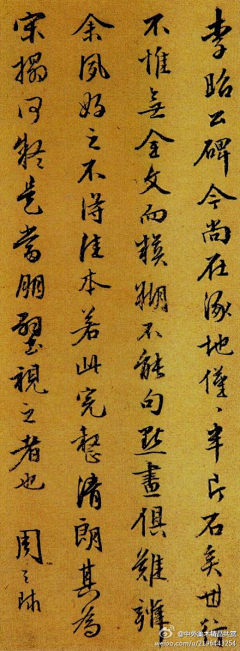 李昭公碑今尚在涿地仅〻半片石矣世行
不惟無全文而模糊不能句點畫俱難雖
余夙好之不得佳本若此完整清朗其為
宋搨何疑是當朋璧視之者也 周之
@中外美术精品共赏
weibo.com/u/2196443254